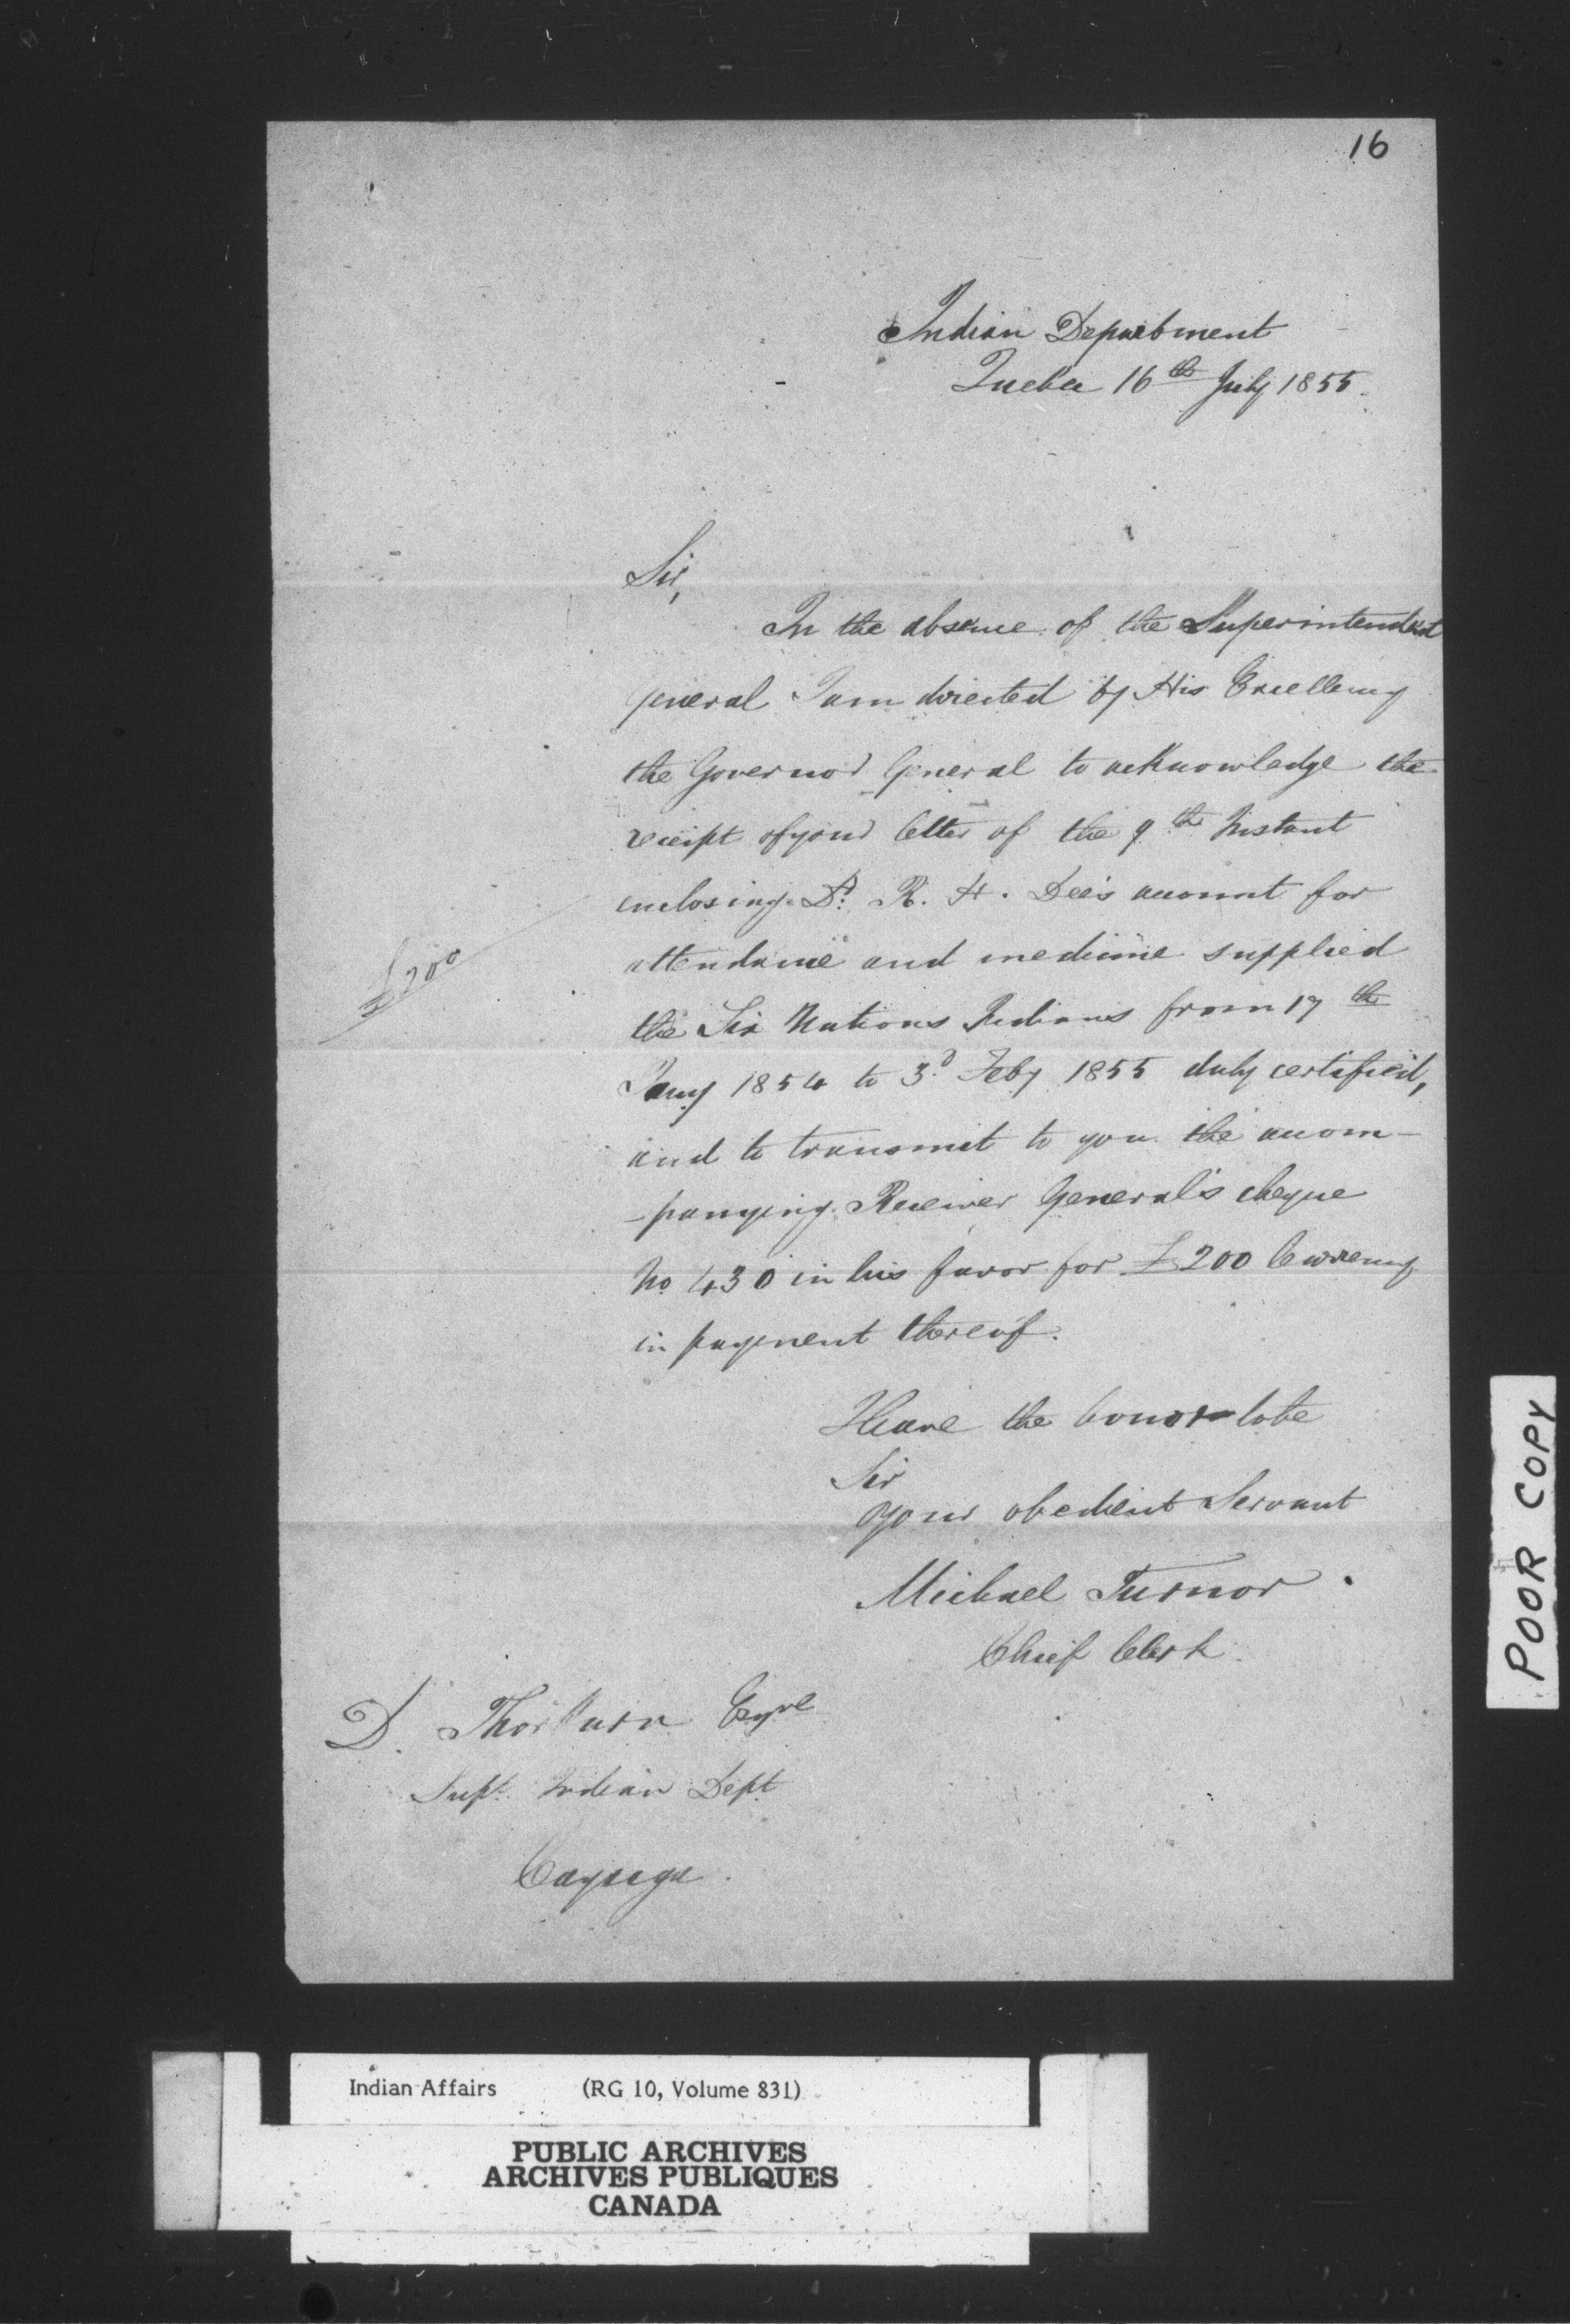 16
Indian Department
Quebec 16th July 1855.
Sir,
In the absence of the Superintendent
General I am directed by His Excellency
the Governor General to acknowledge the
receipt of your letter of the 9th Instant
enclosing Dr. R. H. Dee's account for
attendance and medicine supplied
£200
the Six Nations Indians from 17th
Jany 1854 to 3d Feby 1855 duly certified,
and to transmit to you the accom-
-panying Receiver General's cheque
No 430 in his favor for £200 Currency
in payment thereof.
I have the honor to be
Sir
Your obedient Servant
Michael Turnor
Chief Clerk.
D. Thorburn Esqre
Supt. Indian Dept
Cayuga.
POOR COPY
Indian Affairs (RG 10, Volume 831)
PUBLIC ARCHIVES
ARCHIVES PUBLIQUES
CANADA